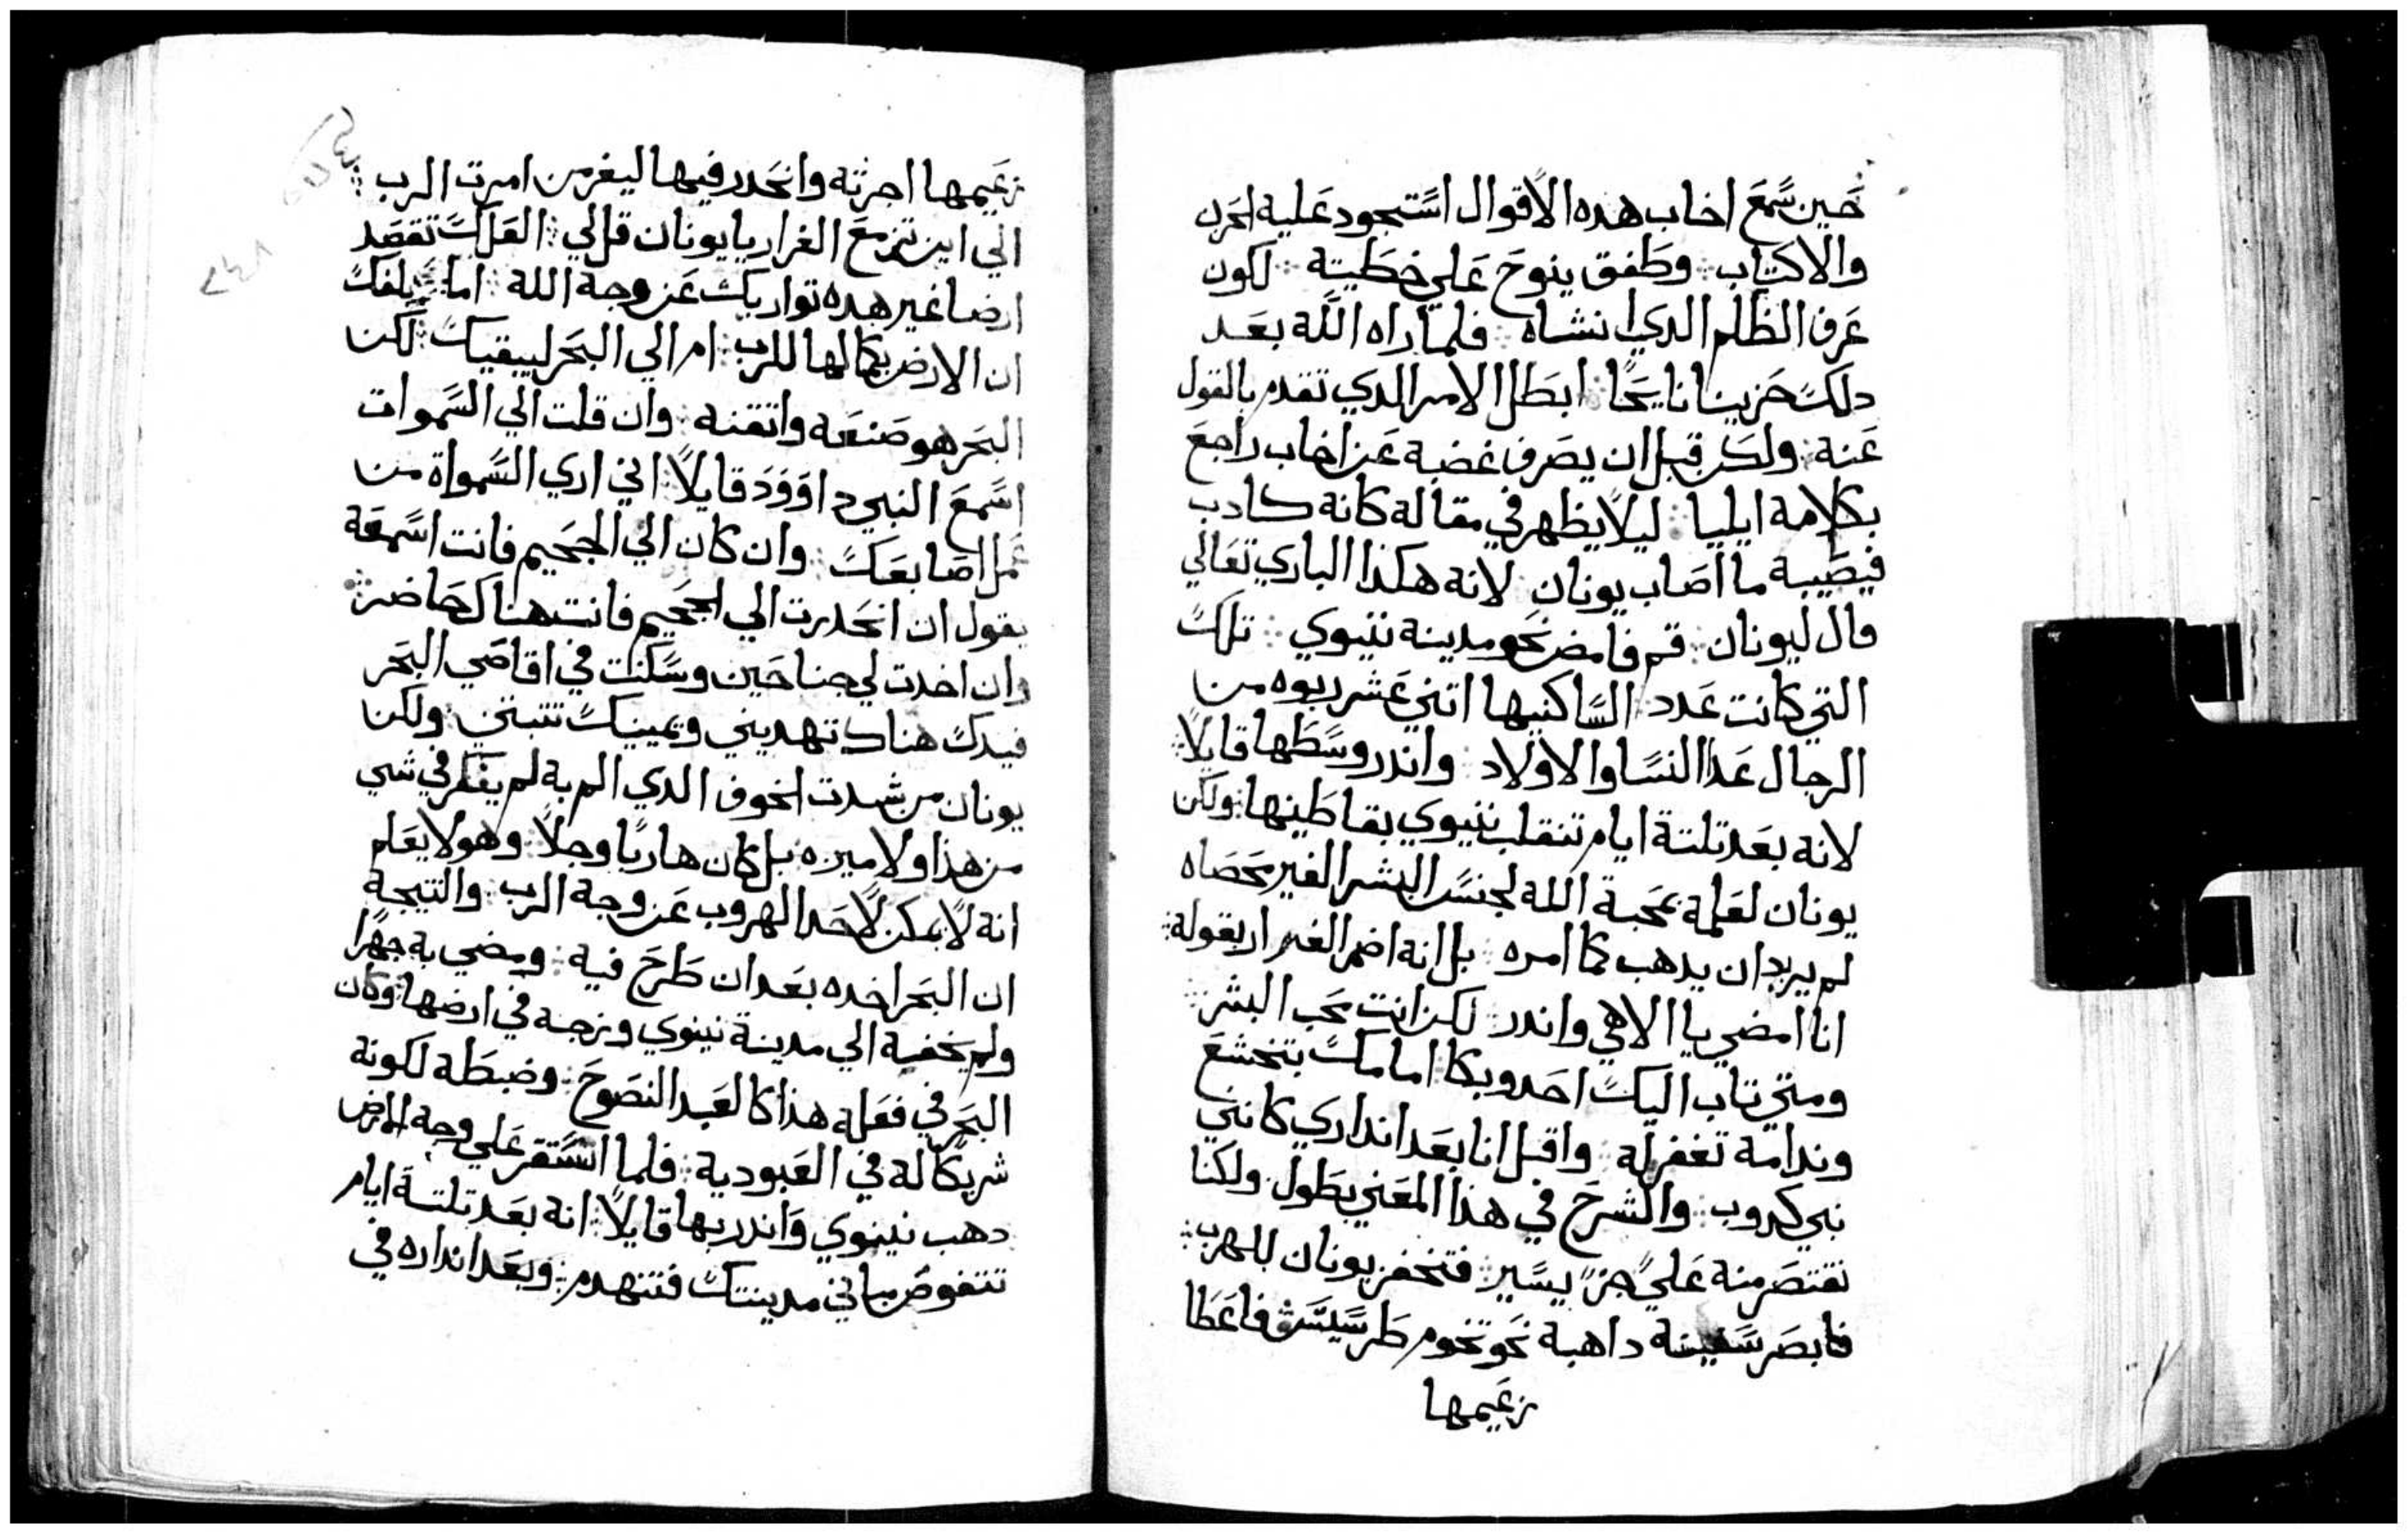 حين سمع اخاب هده الاقوال استجود علية الحزن
والاكتاب ؞ وطفق ينوح علي خطيتة ؞ لكون
عرف الظلم الدي انشاه ؞ فلما راه اللة بعد
دلك حزينا نايحًا ؞ ابطل الامر الدي تقدم بالقول
عنة ؞ ولكن قبل ان يصرف غضبة عن اخاب راجع
بكلامة ايليا ؞ ليلا يظهر في مقالة كانة كادب
فيصيبة ما اصاب يونان ؞ لانة هكذا الباري تعالي
قال ليونان ؞ قم فامض نحو مدينة نينوي ؞ تلك
التي كانت عدد الساكنيها اتني عشر ربوه من
الرجال عدا النسا والاولاد ؞ واندر وسطها قايلًا ؞
لانة بعد تلتة ايام تنقلب نينوي بقاطنيها ؞ ولكن
يونان لعلمة بمحبة اللة لجنس البشر الغير محصاه
لم يريد ان يدهب كما امره ؞ بل انة اضمر الفرار بقولة ؞
انا امضي يا الاهي واندر ؞ لكن انت محب البشر ؞
ومتي تاب اليك احد وبكا امامك بتخشع
وندامة تغفر لة ؞ واقبل انا بعد انداري كانني
نبي كدوب ؞ والشرح في هذا المعني يطول ولكنا
نقتصر منة علي جزٍ يسير ؞ فتحفز يونان للهرب ؞
فابصر سفينة داهبة نحو تخوم طرسيسَ فاعطا
زعيمها
زعيمها اجرتة وانحدر فيها ليفر من امرت الرب ؞
الي اين تزمع الفرار يا يونان قل لي ؞ العلك تقصد
ارضا غير هده تواريك عن وجة اللة ؞ اما يبلغك
ان الارض بكمالها للرب ؞ ام الي البحر ليبقيك ؞ لكن
البحر هو صنعة واتقنة ؞ وان قلت الي السموات
اسمع النبي داوود قايلًا ؞ اني اري السمواة من
عمل اصابعك ؞ وان كان الي الجحيم فانت اسمعة
يقول ان انحدرت الي الجحيم فانت هناك حاضر ؞
وان اخدت لي جناحين وسكنت في اقاصي البحر
فيدك هناك تهديني ويمينك تتبتني ؞ ولكن
يونان من شدت الخوف الدي الم بة لم يفكر في شي
من هذا ولا ميزه ؞ بل كان هاربًا وجلًا ؞ وهو لا يعلم
انة لا يمكن لاحد الهروب عن وجة الرب ؞ والنتيجة
ان البحر اخده بعد ان طرح فية ؞ ومضي بة جهرًا
ولم يخفية الي مدينة نينوي وزجة في ارضها ؞ وكان
البحر في فعلة هذا كالعبد النصوح ؞ وضبطة لكونة
شريكا لة في العبودية ؞ فلما استقر علي وجة الارض
دهب نينوي واندر بها قايلًا ؞ انة بعد تلتة ايام
تتفوض مباني مدينتك فتنهدم ؞ وبعد انداره في